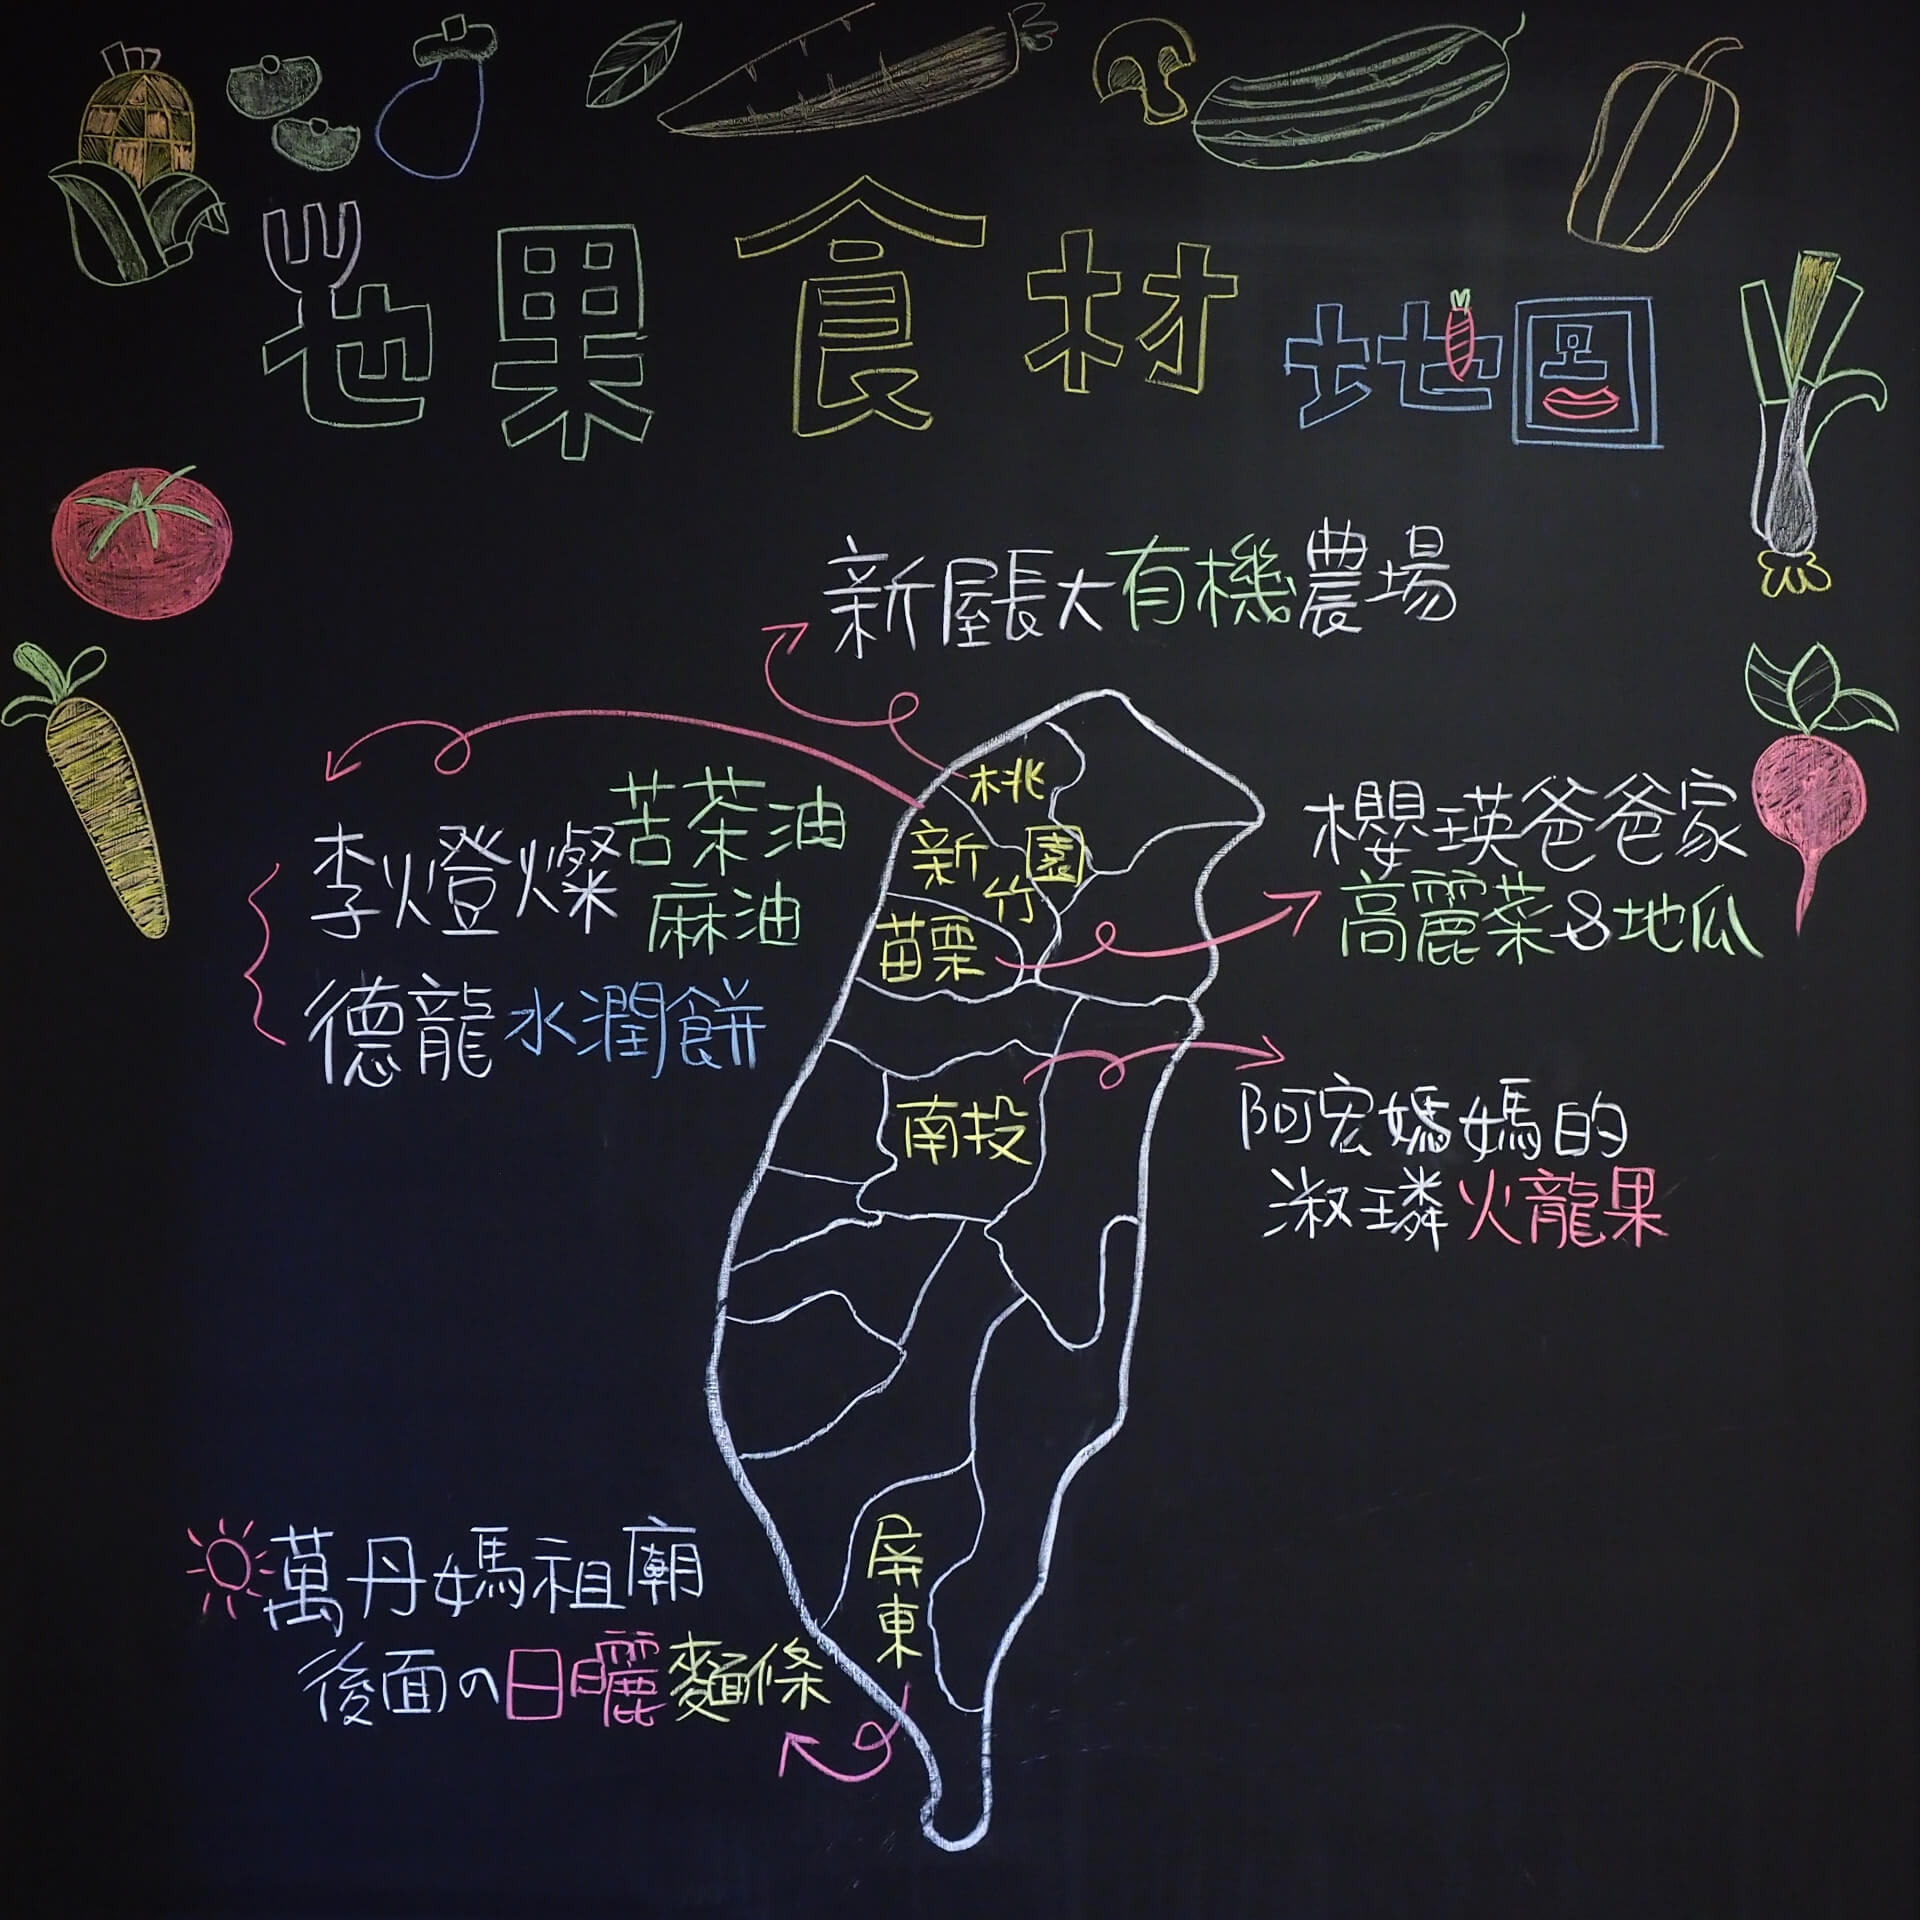 地果食材地圖
新屋長大有機農場
李火燈燦苦茶油
麻油
德龍水潤餅
櫻瑛爸爸家
高麗菜&地瓜
阿宏媽媽的
淑璘火龍果
桃園
新竹
苗栗
南投
屏東
萬丹媽祖廟
後面の日曬麵條